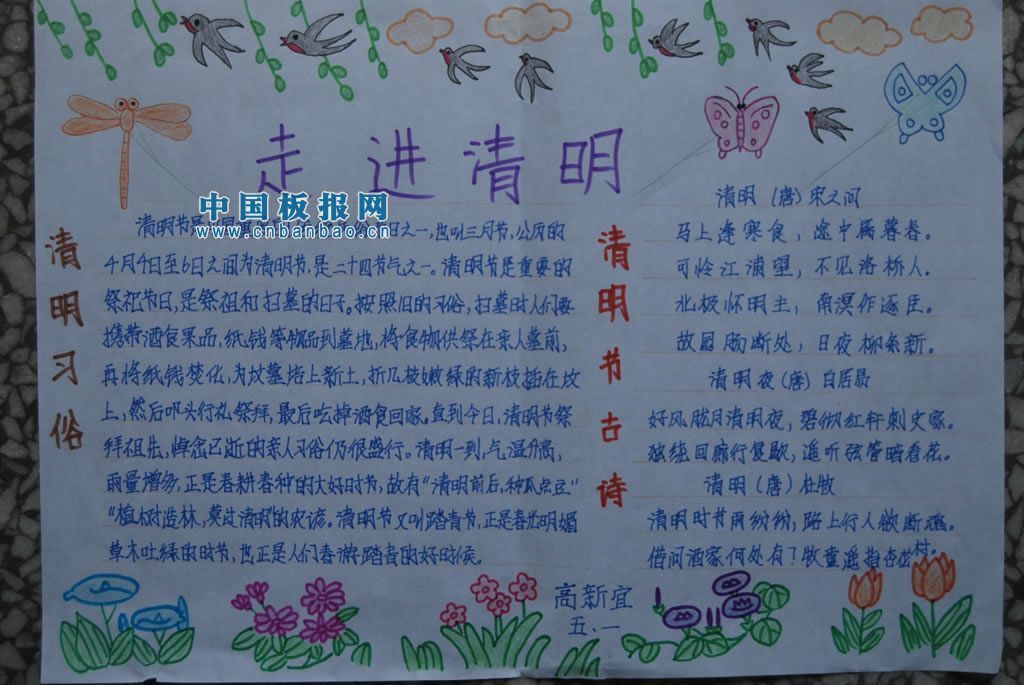 走进清明
中国板报网
www.cnbanbao.cn
清明习俗
清明节是日之一,也叫三月节,公历的
4月4日至6日之间为清明节,是二十四节气之一。清明节是重要的
祭祀节日,是祭祖和扫墓的日子。按照旧的习俗,扫墓时人们要
携带酒食果品,纸钱等物品到墓地,将食物供祭在亲人墓前,
再将纸钱焚化,为坟墓培上新土,折几枝嫩绿的新枝插在坟
上,然后叩头行礼祭拜,最后吃掉酒食回家。直到今日,清明节祭
拜祖先,悼念已逝的亲人习俗仍很盛行。清明一到,气温升高,
雨量增多,正是春耕春种的大好时节,故有“清明前后,种瓜点豆”
“植树造林,莫过清明”的农谚。清明节又叫踏青节,正是春光明媚
草木吐绿的时节,也正是人们春游踏青的好时候。
清明节古诗
清明 (唐) 宋之问
马上逢寒食,途中属暮春。
可怜江浦望,不见洛桥人。
北极怀明主,南溟作逐臣。
故园肠断处,日夜柳条新。
清明夜(唐) 白居易
好风胧月清明夜,碧砌红轩刺史家。
独绕回廊行复歇,遥听弦管暗看花。
清明 (唐) 杜牧
清明时节雨纷纷,路上行人欲断魂。
借问酒家何处有?牧童遥指杏花村。
高新宜
五.一